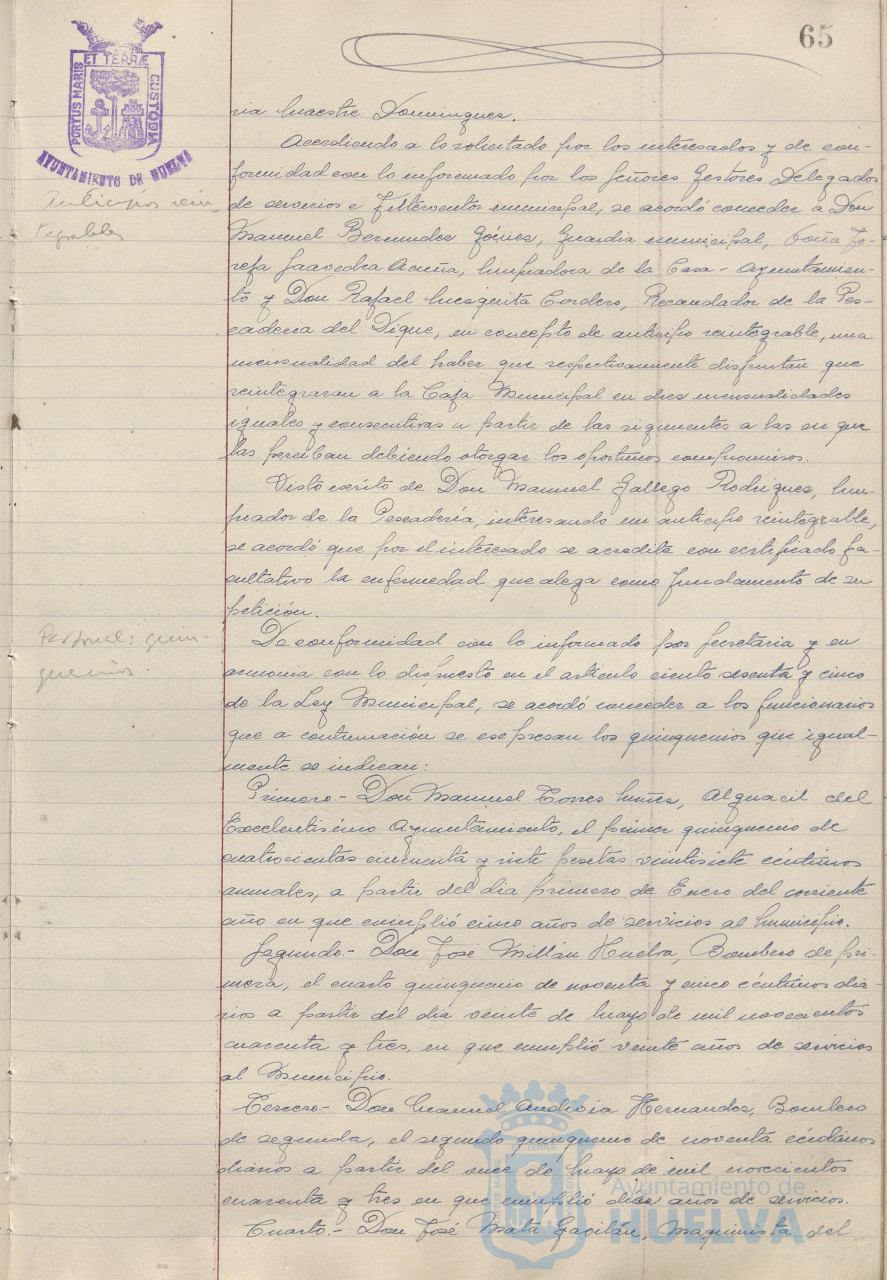 65
PORTUS MARIS ET TERRÆ CUSTODIA
AYUNTAMIENTO DE HUELVA
Anticipos rein-
tegrables
ria Maestre Domingues.
Accediendo a lo solicitado por los interesados y de con-
formidad con lo informado por los Señores Gestores Delegados
de servicios e Interventor municipal, se acordó conceder a Don
Manuel Bermudez Gómez, Guardia municipal, Doña Jo-
sefa Saavedra Acuña, limpiadora de la Casa-Ayuntamien-
to y Don Rafael Mezquita Cordero, Recaudador de la Pes-
caderia del Dique, en concepto de anticipo reintegrable, una
mensualidad del haber que respectivamente disfrutan que
reintegraran a la Caja Municipal en dies mensualidades
iguales y consecutivas a partir de las siguientes a las en que
las perciban debiendo otorgar los oportunos compromisos.
Visto escrito de Don Manuel Gallego Rodrigues, lim-
piador de la Pescadería, interesando un anticipo reintegrable,
se acordó que por el interesado se acredite con certificado fa-
cultativo la enfermedad que alega como fundamento de su
petición.
Personal: quin-
quenios.
De conformidad con lo informado por Secretaria y en
armonia con lo dispuesto en el articulo ciento sesenta y cinco
de la Ley Municipal, se acordó conceder a los funcionarios
que a continuación se expresan los quinquenios que igual-
mente se indican:
Primero.- Don Manuel Torres Nuñes, Alguacil del
Excelentisimo Ayuntamiento, el primer quinquenio de
cuatrocientas cincuenta y siete pesetas veintisiete céntimos
anuales, a partir del dia primero de Enero del corriente
año en que cumplió cinco años de servicios al Municipio.
Segundo.- Don José Millán Huelva, Bombero de pri-
mera, el cuarto quinquenio de noventa y cinco céntimos dia-
rios a partir del dia veinte de Mayo de mil novecientos
cuarenta y tres, en que cumplió veinte años de servicios
al Municipio.
Tercero.- Don Manuel Hernandez, Bombero
de segunda, el segundo quinquenio de noventa céntimos
diarios a partir del once de Mayo de mil novecientos
cuarenta y tres en que cumplió dies años de servicios.
Cuarto.- Don José Mata Gavilán, Maquinista del
Ayuntamiento de
HUELVA